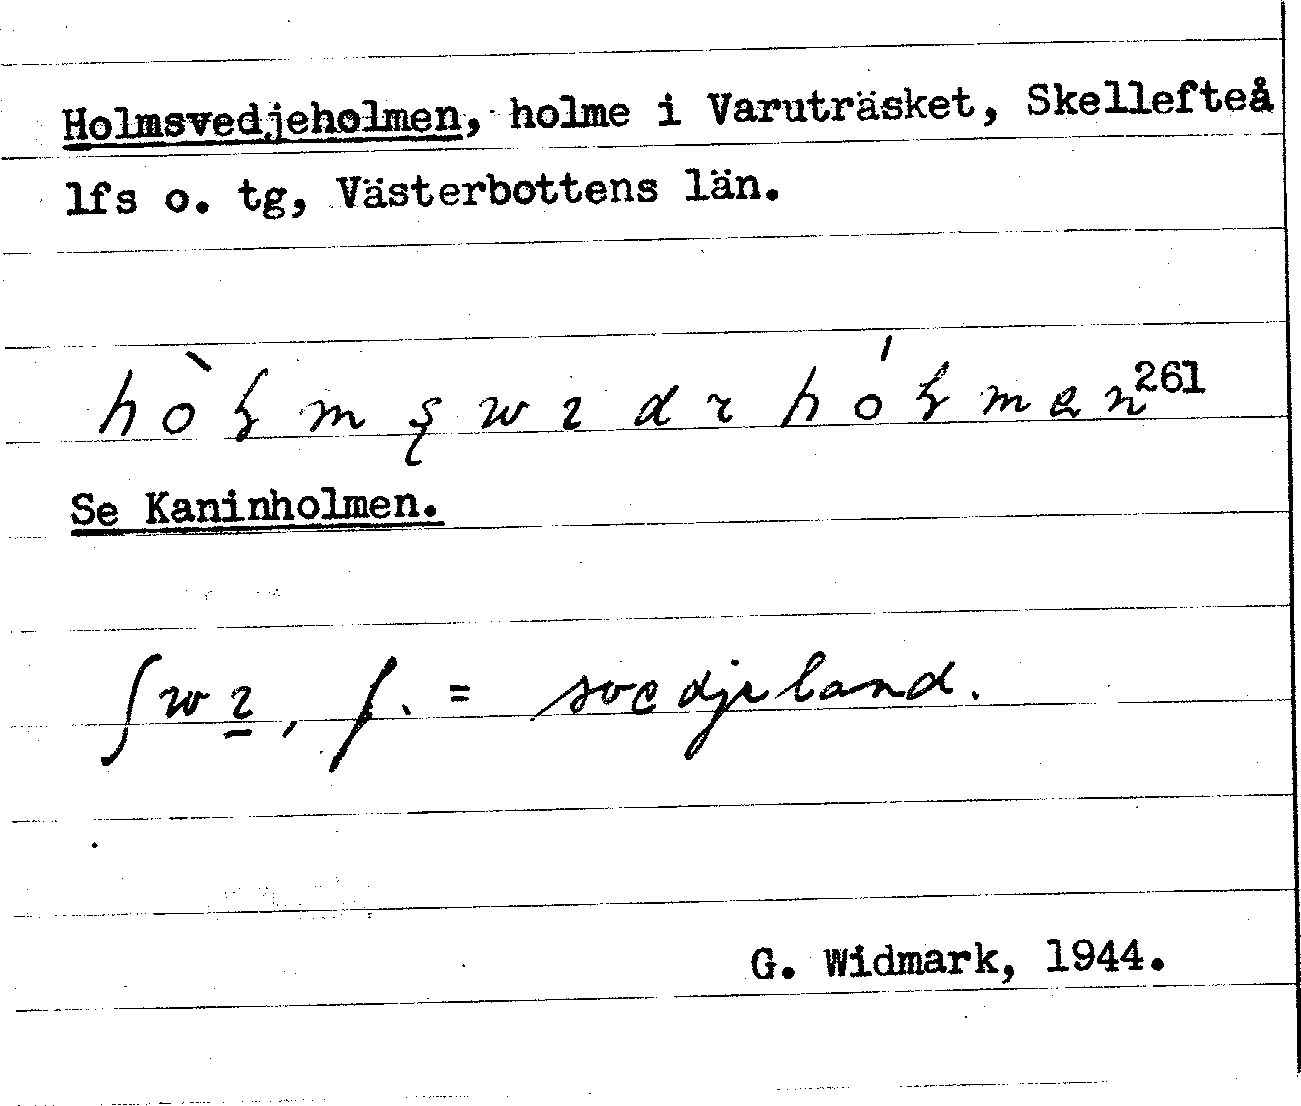 Holmsvedjeholmen, holme i Varuträsket, Skellefteå
lfs o. tg, Västerbottens län.
261
Se Kaninholmen.
f. = svedjeland.
G. Widmark, 1944.